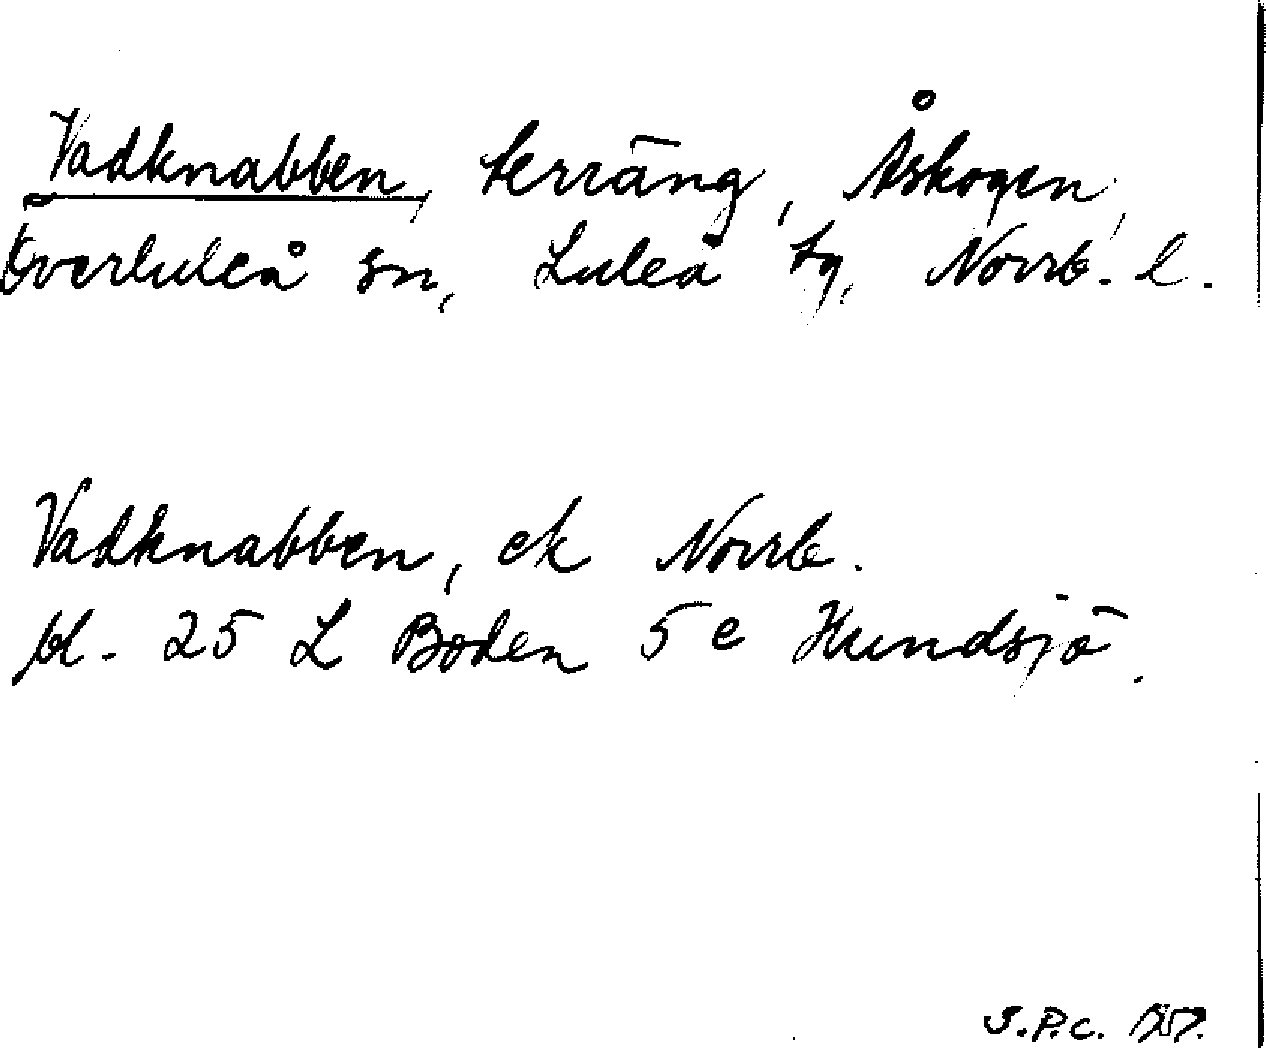 Vadknabben, terräng, Åskogen,
Överluleå sn, Luleå tg, Norrb. l.
Vadknabben, ek Norrb.
bl. 25 L Boden 5 e Hundsjö.
S.P.C. 1957.